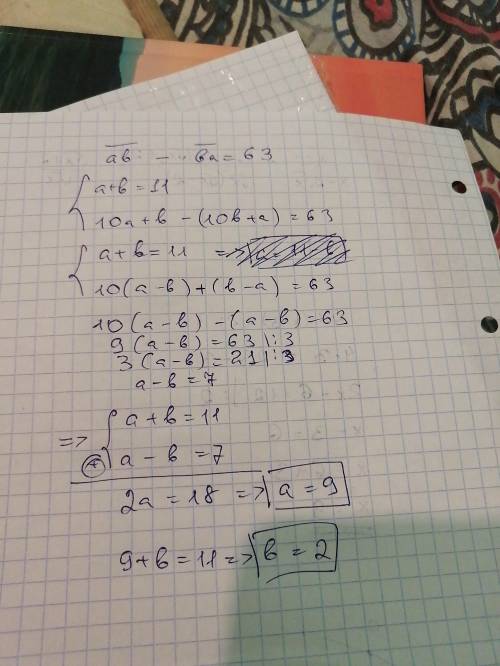 ab - ba = 63
a+b = 11
10a+b - (10b+a) = 63
a+b = 11 =>
10(a-b)+(b-a) = 63
10(a-b) - (a-b) = 63
9(a-b) = 63 |:3
3(a-b) = 21 |:3
a-b = 7
=> a+b = 11
+ a-b = 7
2a = 18 => a = 9
9+b = 11 => b = 2